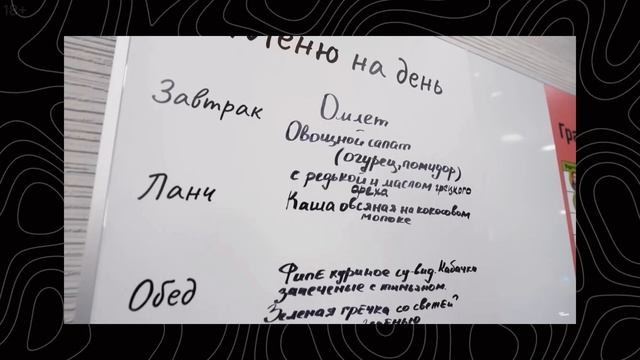 18+
Меню на день
Завтрак
Омлет
Овощной салат
(огурец, помидор)
с редькой и маслом грецкого
ореха
Ланч
Каша овсяная на кокосовом
молоке
Обед
Филе куриное су-вид. Кабачки
запеченые с тимьяном.
Зеленая гречка со свежей
зеленью